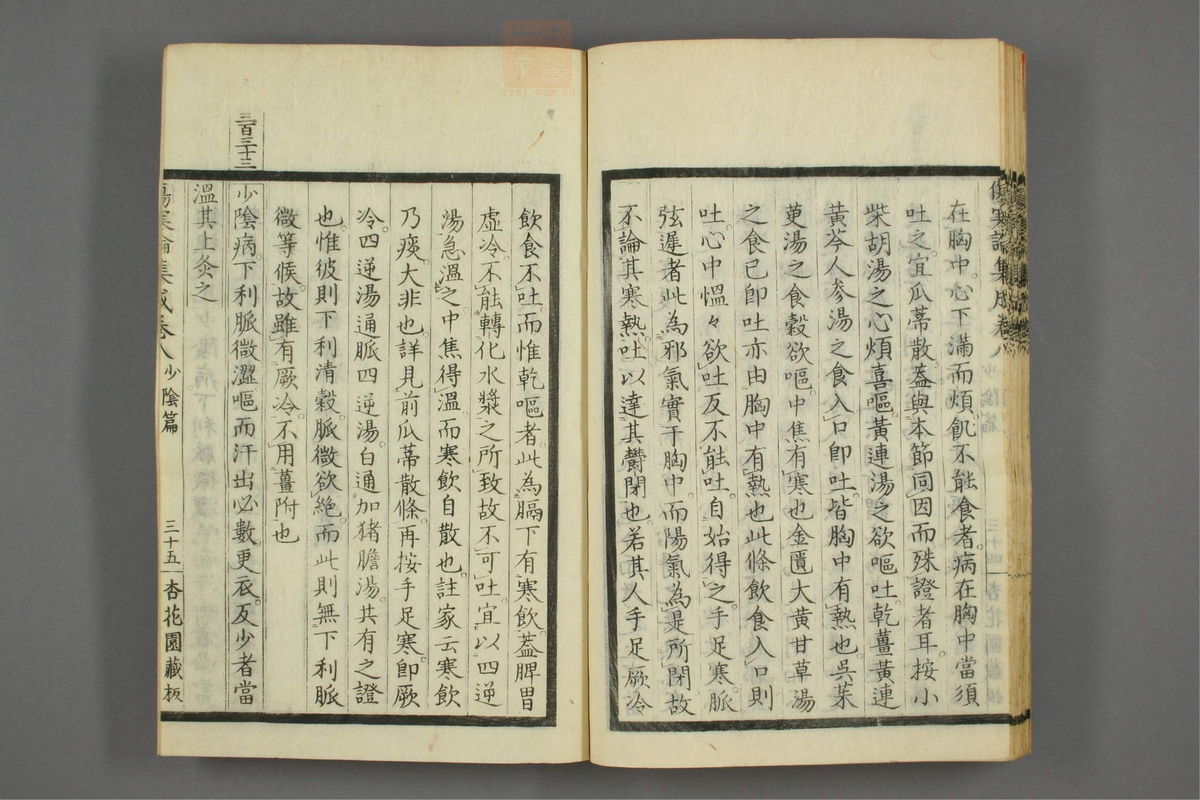 在胸中。心下滿而煩。飢不能食者。病在胸中。當須
吐之。宜瓜蒂散。蓋與本節同因而殊證者耳。按小
柴胡湯之心煩喜嘔。黃連湯之欲嘔吐。乾薑黃連
黃芩人參湯之食入口卽吐。皆胸中有熱也。吳茱
萸湯之食穀欲嘔。中焦有寒也。金匱大黃甘草湯
之食已卽吐。亦由胸中有熱也。此條飲食入口則
吐。心中慍々欲吐。反不能吐。自始得之。手足寒。脈
弦遲者。此為邪氣實于胸中。而陽氣為是所閉。故
不論其寒熱。吐以達其鬱閉也。若其人手足厥冷
飲食不吐。而惟乾嘔者。此為膈下有寒飲。蓋脾胃
虛冷。不能轉化水漿之所致。故不可吐。宜以四逆
湯急溫之。中焦得溫。而寒飲自散也。註家云寒飲
乃痰。大非也。詳見前瓜蒂散條。再按手足寒。卽厥
冷。四逆湯通脈四逆湯。白通加猪膽湯。其有之證
也。惟彼則下利清穀。脈微欲絕。而此則無下利脈
微等候。故雖有厥冷。不用薑附也
三百三十三
少陰病。下利脈微澀。嘔而汗出。必數更衣。反少者。當
溫其上灸之
傷寒論集成卷八 少陰篇 三十五 杏花園藏板